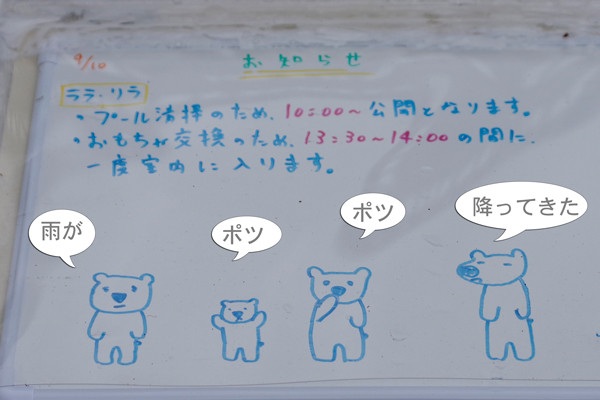 9/10
お知らせ
ララ・リラ
・プール清掃のため、10:00~公開となります。
・おもちゃ交換のため、13:30~14:00の間に、
一度室内に入ります。
雨が
ポツ
ポツ
降ってきた